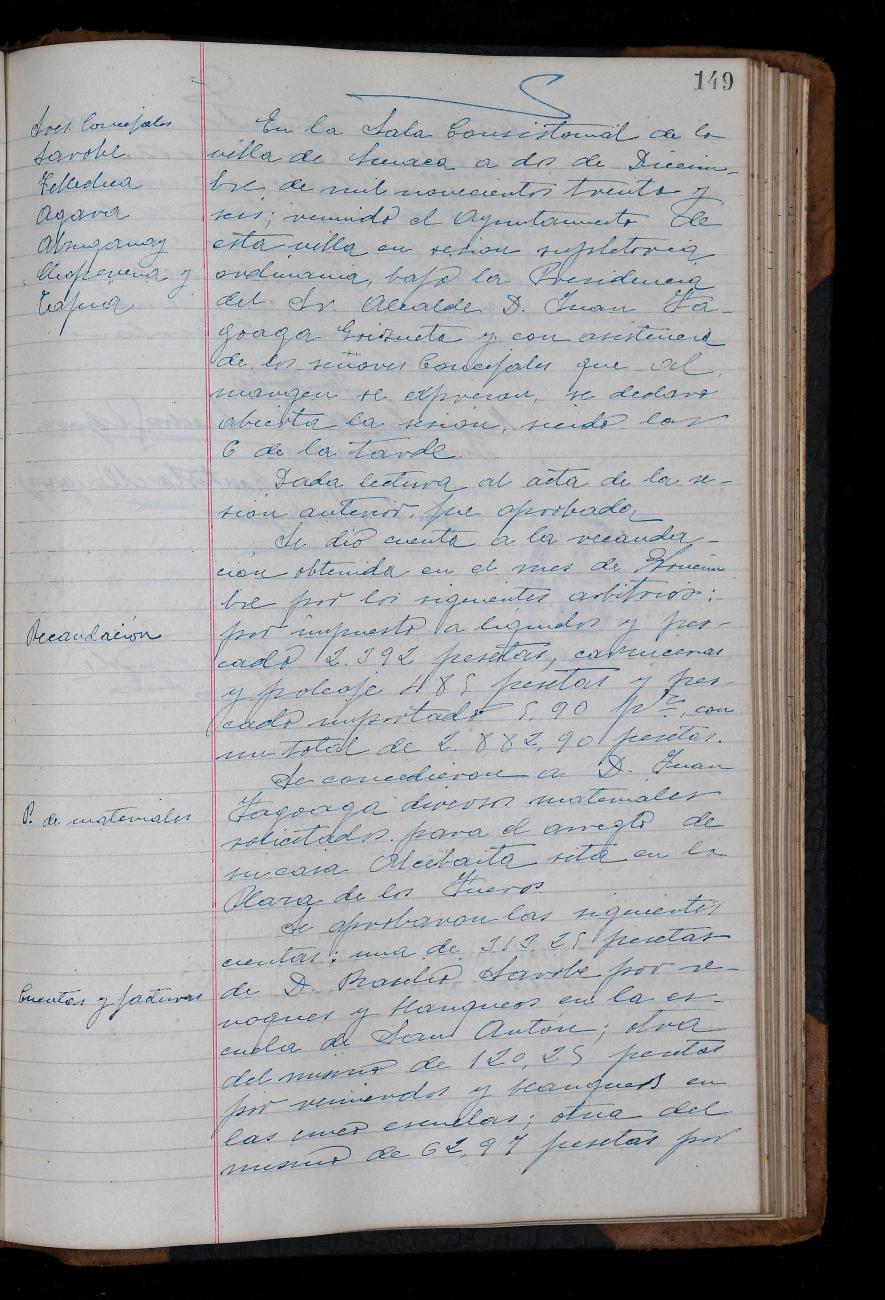 149
Sres Concejales
Sarobe
Tellechea
Agara
Abrugamay
y
Tapia
En la Sala Consistorial de la
villa de a dos de Diciem-
bre de mil novecientos treinta y
seis; reunido el Ayuntamiento de
esta villa en sesion supletoria
ordinaria, bajo la Presidencia
del Sr. Alcalde D. Juan Ya-
goaga Goizueta y con asistencia
de los señores Concejales que al
margen se expresan, se declaro
abierta la sesión, siendo las
6 de la tarde.
Dada lectura al acta de la se-
sion anterior, fue aprobada
Se dio cuenta a la recauda-
ción obtenida en el mes de Noviem
bre por los siguientes arbitrios:
Recaudación
por impuesto a liquidos y pes-
cado 2.392 pesetas, carnicerias
y poleaje 485 pesetas y pes-
cado importado 5,90 ptas, con
un total de 2.882,90 pesetas.
Se concedieron a D. Juan
P. de materiales
Yagoaga diversos materiales
solicitados para el arreglo de
su casa sita en la
Plaza de los Fueros.
Se aprobaron las siguientes
cuentas: una de 313,25 pesetas
Cuentas y facturas
de D. Basilio Sarobe por re-
voques y blanqueos en la es-
cuela de San Antón; otra
del mismo de 120,25 pesetas
por remiendos y blanqueos en
las escuelas; otra del
mismo de 62,97 pesetas por